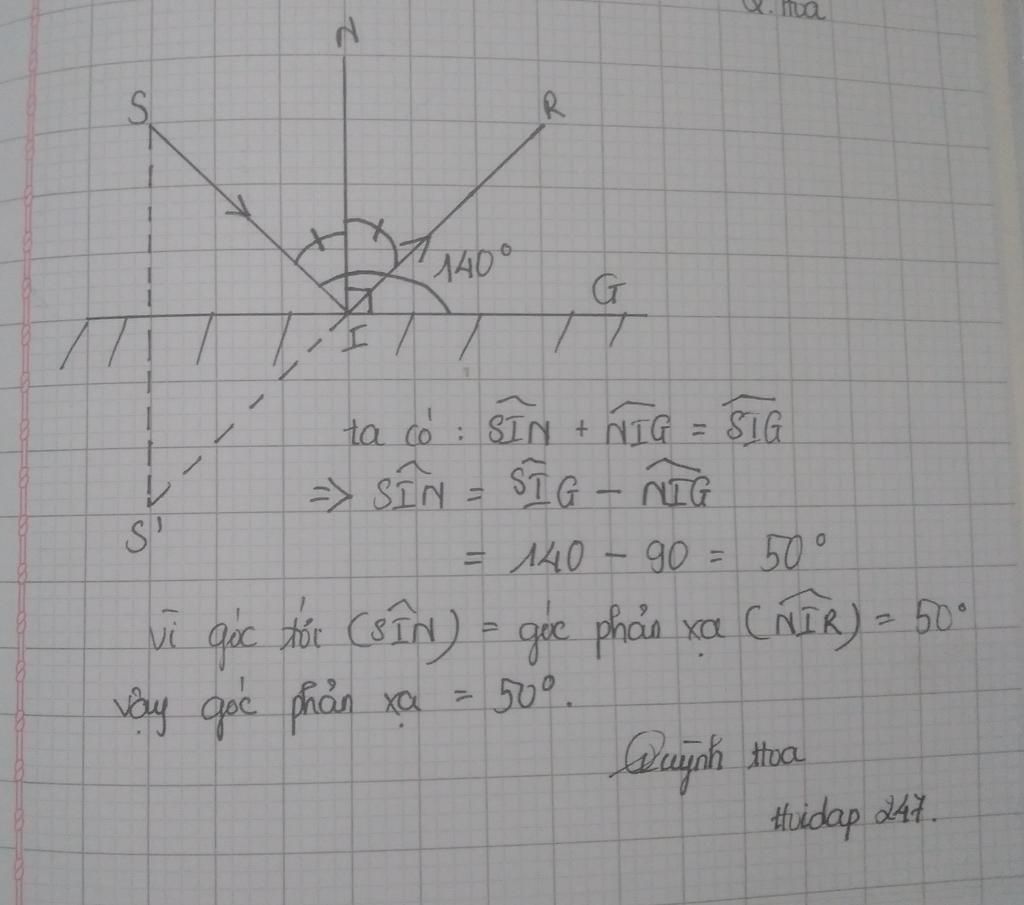 Q. Hoa
N
S
R
140°
G
I
S'
ta có : SIN + NIG = SIG
=> SIN = SIG - NIG
= 140 - 90 = 50°
vì góc tới (SIN) = góc phản xạ (NIR) = 50°
vậy góc phản xạ = 50°.
Quỳnh Hoa
Hoidap 247.